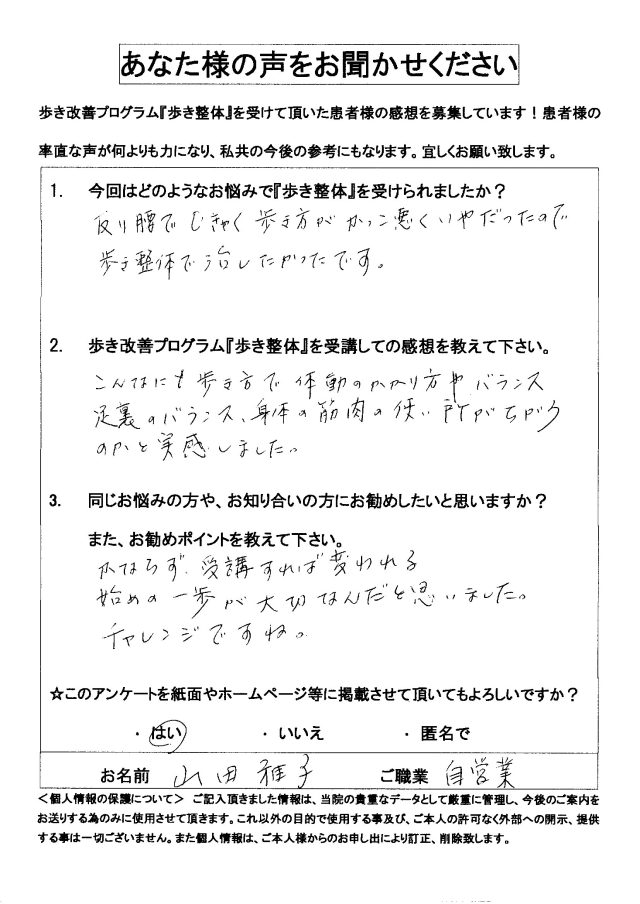 あなた様の声をお聞かせください
歩き改善プログラム『歩き整体』を受けて頂いた患者様の感想を募集しています！患者様の
率直な声が何よりも力になり、私共の今後の参考にもなります。宜しくお願い致します。
1. 今回はどのようなお悩みで『歩き整体』を受けられましたか？
反り腰でじきゃく歩き方がかっこ悪くいやだったので
歩き整体で治したかったです。
2. 歩き改善プログラム『歩き整体』を受講しての感想を教えて下さい。
こんなにも歩き方で体動のかかり方やバランス
足裏のバランス、身体の筋肉の使い所がちがう
のかと実感しました。
3. 同じお悩みの方や、お知り合いの方にお勧めしたいと思いますか？
また、お勧めポイントを教えて下さい。
かならず、受講すれば変われる
始めの一歩が大切なんだと思いました。
チャレンジですね。
☆このアンケートを紙面やホームページ等に掲載させて頂いてもよろしいですか？
・はい ・いいえ ・匿名で
お名前 山田雅子 ご職業 自営業
＜個人情報の保護について＞ ご記入頂きました情報は、当院の貴重なデータとして厳重に管理し、今後のご案内を
お送りする為のみに使用させて頂きます。これ以外の目的で使用する事及び、ご本人の許可なく外部への開示、提供
する事は一切ございません。また個人情報は、ご本人様からのお申し出により訂正、削除致します。